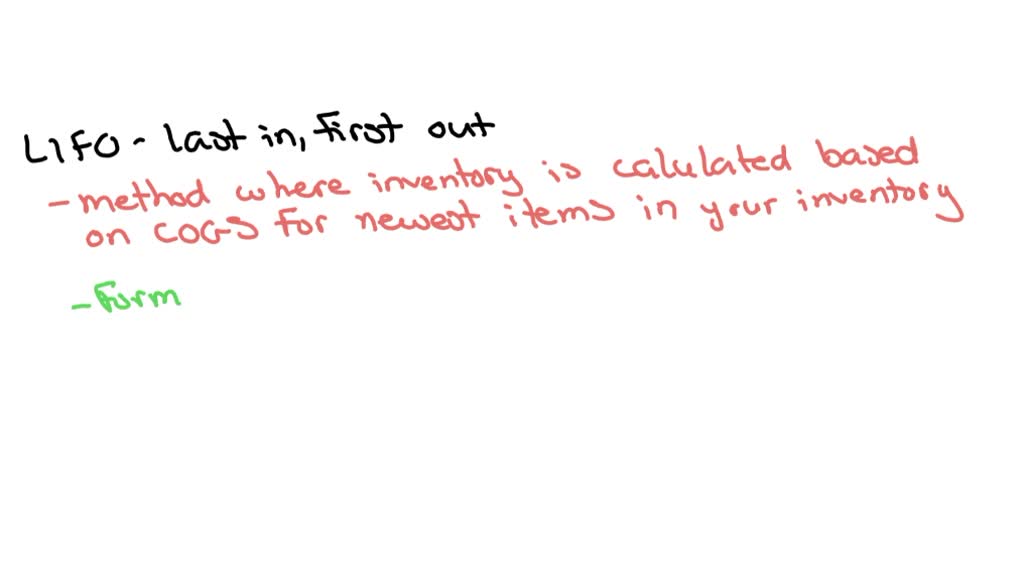 LIFO - last in, first out
- method where inventory is calulated based
on COGS for newest items in your inventory
- Form